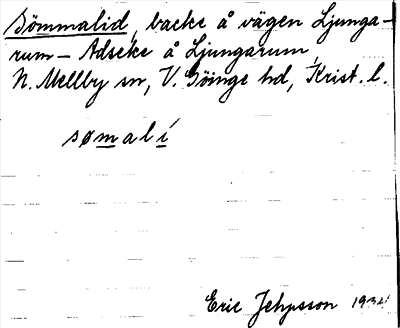 Sömmalid, backe å vägen Ljunga-
rum – Adseke å Ljungarum
N. Mellby sn, V. Göinge hd, Krist. l.
sømalí
Eric Jepsson 1934